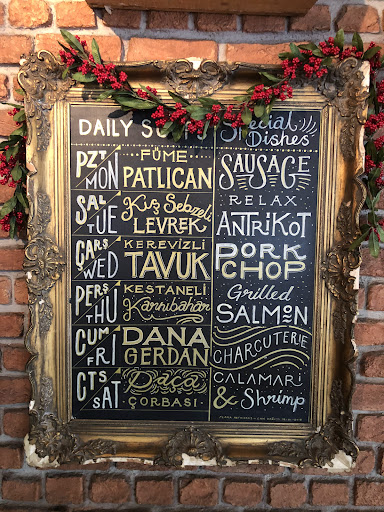 DAILY
Special
Dishes
PZT
MON
FÜME
PATLICAN
SAL
TUE
Kış Sebzeli
LEVREK
ÇARŞ
WED
KEREVİZLİ
TAVUK
PERŞ
THU
KESTANELİ
Karnıbahar
CUM
FRİ
DANA
GERDAN
CTS
SAT
Paça
ÇORBASI
SAUSAGE
RELAX
ANTRİKOT
PORK
CHOP
Grilled
SALMON
CHARCUTERIE
CALAMARI
& Shrimp